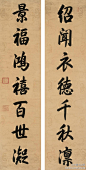 绍闻衣德千秋凛
景福鸿禧百世凝